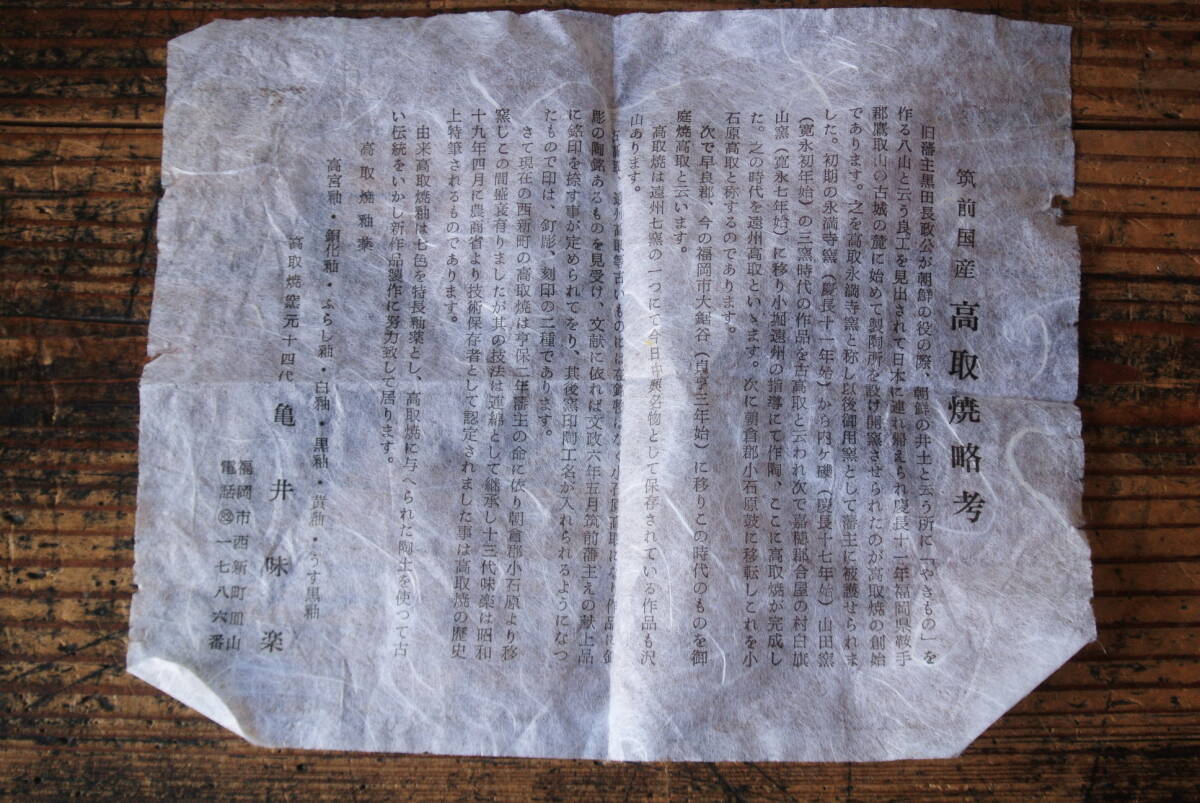 筑前国産 高取焼略考
旧藩主黒田長政公が朝鮮の役の際、朝鮮の井土と云う所に「やきもの」を
作る八山と云う良工を見出されて日本に連れ帰えられ慶長十一年福岡県鞍手
郡鷹取山の古城の麓に始めて製陶所を設け開窯させられたのが高取焼の創始
であります。之を高取永満寺窯と称し以後御用窯として藩主に被護せられま
した。初期の永満寺窯（慶長十一年始）から内ヶ磯（慶長十七年始）山田窯
（寛永初年始）の三窯時代の作品を古高取と云われ次で嘉穂郡合屋の村白旗
山窯（寛永七年始）に移り小堀遠州の指導にて作陶、ここに高取焼が完成し
た。之の時代を遠州高取といゝます。次に朝倉郡小石原鼓に移転しこれを小
石原高取と称するのであります。
次で早良郡、今の福岡市大鋸谷（貞享三年始）に移りこの時代のものを御
庭焼高取と云います。
高取焼は遠州七窯の一つにて今日中興名物として保存されている作品も沢
山あります。
遠州高取等古いものには 小石原高取
彫の陶銘あるものを見受け、文献に依れば文政六年五月筑前藩主えの献上品
に銘印を捺す事が定められてをり、其後窯印陶工名が入れられるようになつ
たもので印は、釘彫、刻印の二種であります。
さて現在の西新町の高取焼は享保二年藩主の命に依り朝倉郡小石原より移
窯しこの間盛衰有りましたが其の技法は連綿として継承し十三代味楽は昭和
十九年四月に農商省より技術保存者として認定されました事は高取焼の歴史
上特筆されるものであります。
由来高取焼釉は七色を特長釉薬とし、高取焼に与へられた陶土を使つて古
い伝統をいかし新作品製作に努力致して居ります。
高取焼釉薬
高宮釉・銅化釉・ふらし釉・白釉・黒釉・黄釉・うす黒釉
高取焼窯元十四代 亀井味楽
福岡市西新町皿山
電話 一七八六番